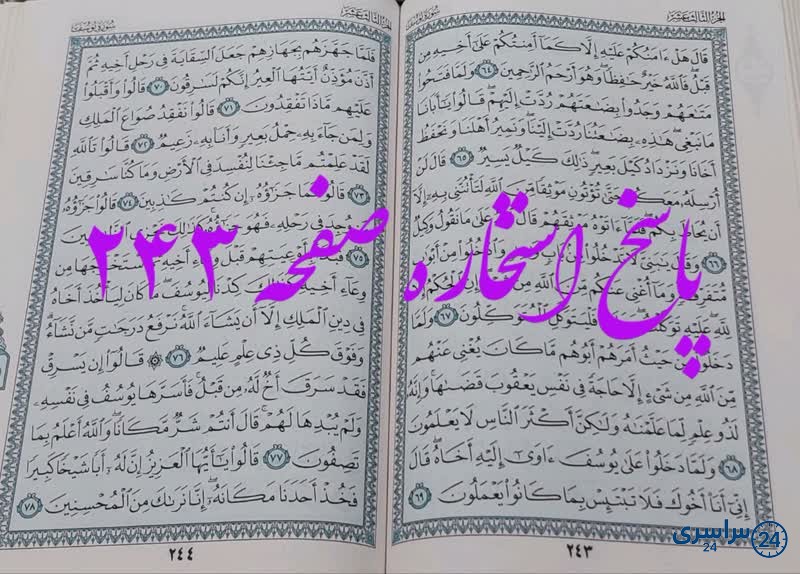 الجزء الثالث عشر
سورة يوسف
قَالَ هَلْ ءَامَنُكُمْ عَلَيْهِ إِلَّا كَمَا أَمِنتُكُمْ عَلَىٰ أَخِيهِ مِن
قَبْلُ فَاللَّهُ خَيْرٌ حَافِظًا وَهُوَ أَرْحَمُ الرَّاحِمِينَ ٦٤ وَلَمَّا فَتَحُوا
مَتَاعَهُمْ وَجَدُوا بِضَاعَتَهُمْ رُدَّتْ إِلَيْهِمْ قَالُوا يَا أَبَانَا
مَا نَبْغِي هَٰذِهِ بِضَاعَتُنَا رُدَّتْ إِلَيْنَا وَنَمِيرُ أَهْلَنَا وَنَحْفَظُ
أَخَانَا وَنَزْدَادُ كَيْلَ بَعِيرٍ ذَٰلِكَ كَيْلٌ يَسِيرٌ ٦٥ قَالَ لَنْ
أُرْسِلَهُ مَعَكُمْ حَتَّىٰ تُؤْتُونِ مَوْثِقًا مِّنَ اللَّهِ لَتَأْتُنَّنِي بِهِ إِلَّا
أَن يُحَاطَ بِكُمْ فَلَمَّا ءَاتَوْهُ مَوْثِقَهُمْ قَالَ عَلَىٰ مَا نَقُولُ وَكِيلٌ
٦٦ وَقَالَ يَا بَنِيَّ لَا تَدْخُلُوا مِن بَابٍ وَادْخُلُوا مِنْ أَبْوَابٍ
مُّتَفَرِّقَةٍ وَمَا أُغْنِي عَنكُم مِّنَ اللَّهِ مِن إِنِ الْحُكْمُ إِلَّا
لِلَّهِ عَلَيْهِ تَوَكَّلْتُ فَلْيَتَوَكَّلِ الْمُتَوَكِّلُونَ ٦٧ وَلَمَّا
دَخَلُوا مِنْ حَيْثُ أَمَرَهُمْ أَبُوهُم مَّا كَانَ يُغْنِي عَنْهُم
مِّنَ اللَّهِ مِن شَيْءٍ إِلَّا حَاجَةً فِي نَفْسِ يَعْقُوبَ قَضَاهَا وَإِنَّهُ
لَذُو عِلْمٍ لِّمَا عَلَّمْنَاهُ وَلَٰكِنَّ أَكْثَرَ النَّاسِ لَا يَعْلَمُونَ
٦٨ وَلَمَّا دَخَلُوا عَلَىٰ يُوسُفَ ءَاوَىٰ إِلَيْهِ أَخَاهُ قَالَ
إِنِّي أَنَا أَخُوكَ فَلَا تَبْتَئِسْ بِمَا كَانُوا يَعْمَلُونَ ٦٩
٢٤٣
سورة يوسف
الجزء الثالث عشر
فَلَمَّا جَهَّزَهُم بِجَهَازِهِمْ جَعَلَ السِّقَايَةَ فِي رَحْلِ أَخِيهِ ثُمَّ
أَذَّنَ مُؤَذِّنٌ أَيَّتُهَا الْعِيرُ إِنَّكُمْ لَسَارِقُونَ ٧٠ قَالُوا وَأَقْبَلُوا
عَلَيْهِم مَّاذَا تَفْقِدُونَ ٧١ قَالُوا نَفْقِدُ صُوَاعَ الْمَلِكِ
وَلِمَن جَاءَ بِهِ حِمْلُ بَعِيرٍ وَأَنَا بِهِ زَعِيمٌ ٧٢ قَالُوا تَاللَّهِ
لَقَدْ عَلِمْتُم مَّا جِئْنَا لِنُفْسِدَ فِي الْأَرْضِ وَمَا كُنَّا سَارِقِينَ
٧٣ قَالُوا فَمَا جَزَاؤُهُ إِن كُنتُمْ كَاذِبِينَ ٧٤ قَالُوا جَزَاؤُهُ
وُجِدَ فِي رَحْلِهِ فَهُوَ جَزَاؤُهُ كَذَٰلِكَ نَجْزِي الظَّالِمِينَ
٧٥ بِأَوْعِيَتِهِمْ قَبْلَ وِعَاءِ أَخِيهِ اسْتَخْرَجَهَا مِن
وِعَاءِ أَخِيهِ كَذَٰلِكَ كِدْنَا لِيُوسُفَ مَا كَانَ لِيَأْخُذَ أَخَاهُ
فِي دِينِ الْمَلِكِ إِلَّا أَن يَشَاءَ اللَّهُ نَرْفَعُ دَرَجَاتٍ مَّن نَّشَاءُ
وَفَوْقَ كُلِّ ذِي عِلْمٍ عَلِيمٌ ٧٦ ۞ قَالُوا إِن يَسْرِقْ
فَقَدْ سَرَقَ أَخٌ لَّهُ مِن قَبْلُ فَأَسَرَّهَا يُوسُفُ فِي نَفْسِهِ
وَلَمْ يُبْدِهَا لَهُمْ قَالَ أَنتُمْ شَرٌّ مَّكَانًا وَاللَّهُ أَعْلَمُ بِمَا
تَصِفُونَ ٧٧ قَالُوا يَا أَيُّهَا الْعَزِيزُ إِنَّ لَهُ أَبًا شَيْخًا كَبِيرًا
فَخُذْ أَحَدَنَا مَكَانَهُ إِنَّا نَرَاكَ مِنَ الْمُحْسِنِينَ ٧٨
٢٤٤
پاسخ استخاره صفحه ۲۴۳
سراسری
24
24